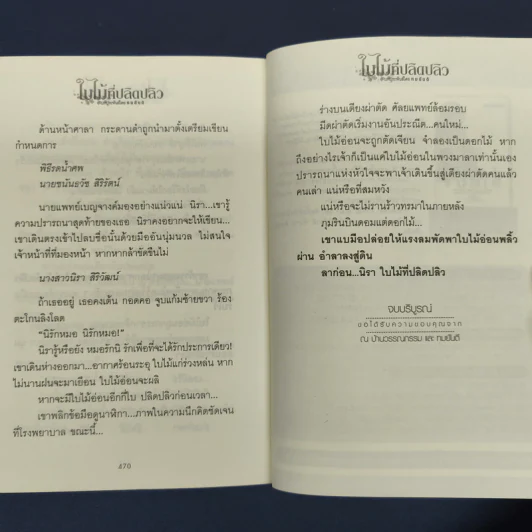 ใบไม้ที่ปลิดปลิว
ด้านหน้าศาลา กระดานดำถูกนำมาตั้งเตรียมเขียน
กำหนดการ
พิธีรดน้ำศพ
นายชนันธวัช สิริรัตน์
นายแพทย์เบญจางค์มองอย่างแน่วแน่ นิรา...เขารู้
ความปรารถนาสุดท้ายของเธอ นิราคงอยากจะให้เขียน...
เขาเดินตรงเข้าไปลบชื่อนั้นด้วยมืออันนุ่มนวล ไม่สนใจ
เจ้าหน้าที่ที่มองหน้า หากหากล้าขัดขืนไม่
นางสาวนิรา สิริวัฒน์
ถ้าเธออยู่ เธอคงเต้น กอดคอ จูบแก้มซ้ายขวา ร้อง
ตะโกนลิงโลด
“นิรักหมอ นิรักหมอ!”
นิรารู้หรือยัง หมอรักนิ รักเพื่อที่จะได้รักประการเดียว!
เขาเดินห่างออกมา...อากาศร้อนระอุ ใบไม้แก่ร่วงหล่น หาก
ไม่นานฝนจะมาเยือน ใบไม้อ่อนจะผลิ
หากจะมีใบไม้อ่อนอีกกี่ใบ ปลิดปลิวก่อนเวลา...
เขาพลิกข้อมือดูนาฬิกา...ภาพในความนึกคิดชัดเจน
ที่โรงพยาบาล ขณะนี้...
470
ใบไม้ที่ปลิดปลิว
ร่างบนเตียงผ่าตัด ศัลยแพทย์ล้อมรอบ
มีดผ่าตัดเริ่มงานอันประณีต...คนใหม่...
ใบไม้อ่อนจะถูกตัดเจียน จำลองเป็นดอกไม้ หาก
ถึงอย่างไรเจ้าก็เป็นแค่ใบไม้อ่อนในพวงมาลาเท่านั้นเอง
ปรารถนาแห่งหัวใจจะพาเจ้าเดินขึ้นสู่เตียงผ่าตัดคนแล้ว
คนเล่า แน่หรือที่สมหวัง
แน่หรือจะไม่รานร้าวทรมาในภายหลัง
ภุมรินบินดอมแต่ดอกไม้...
เขาแบมือปล่อยให้แรงลมพัดพาใบไม้อ่อนพลิ้ว
ผ่าน อำลาลงสู่ดิน
ลาก่อน...นิรา ใบไม้ที่ปลิดปลิว
จบบริบูรณ์
ขอได้รับความขอบคุณจาก
ณ บ้านวรรณกรรม และ ทมยันตี